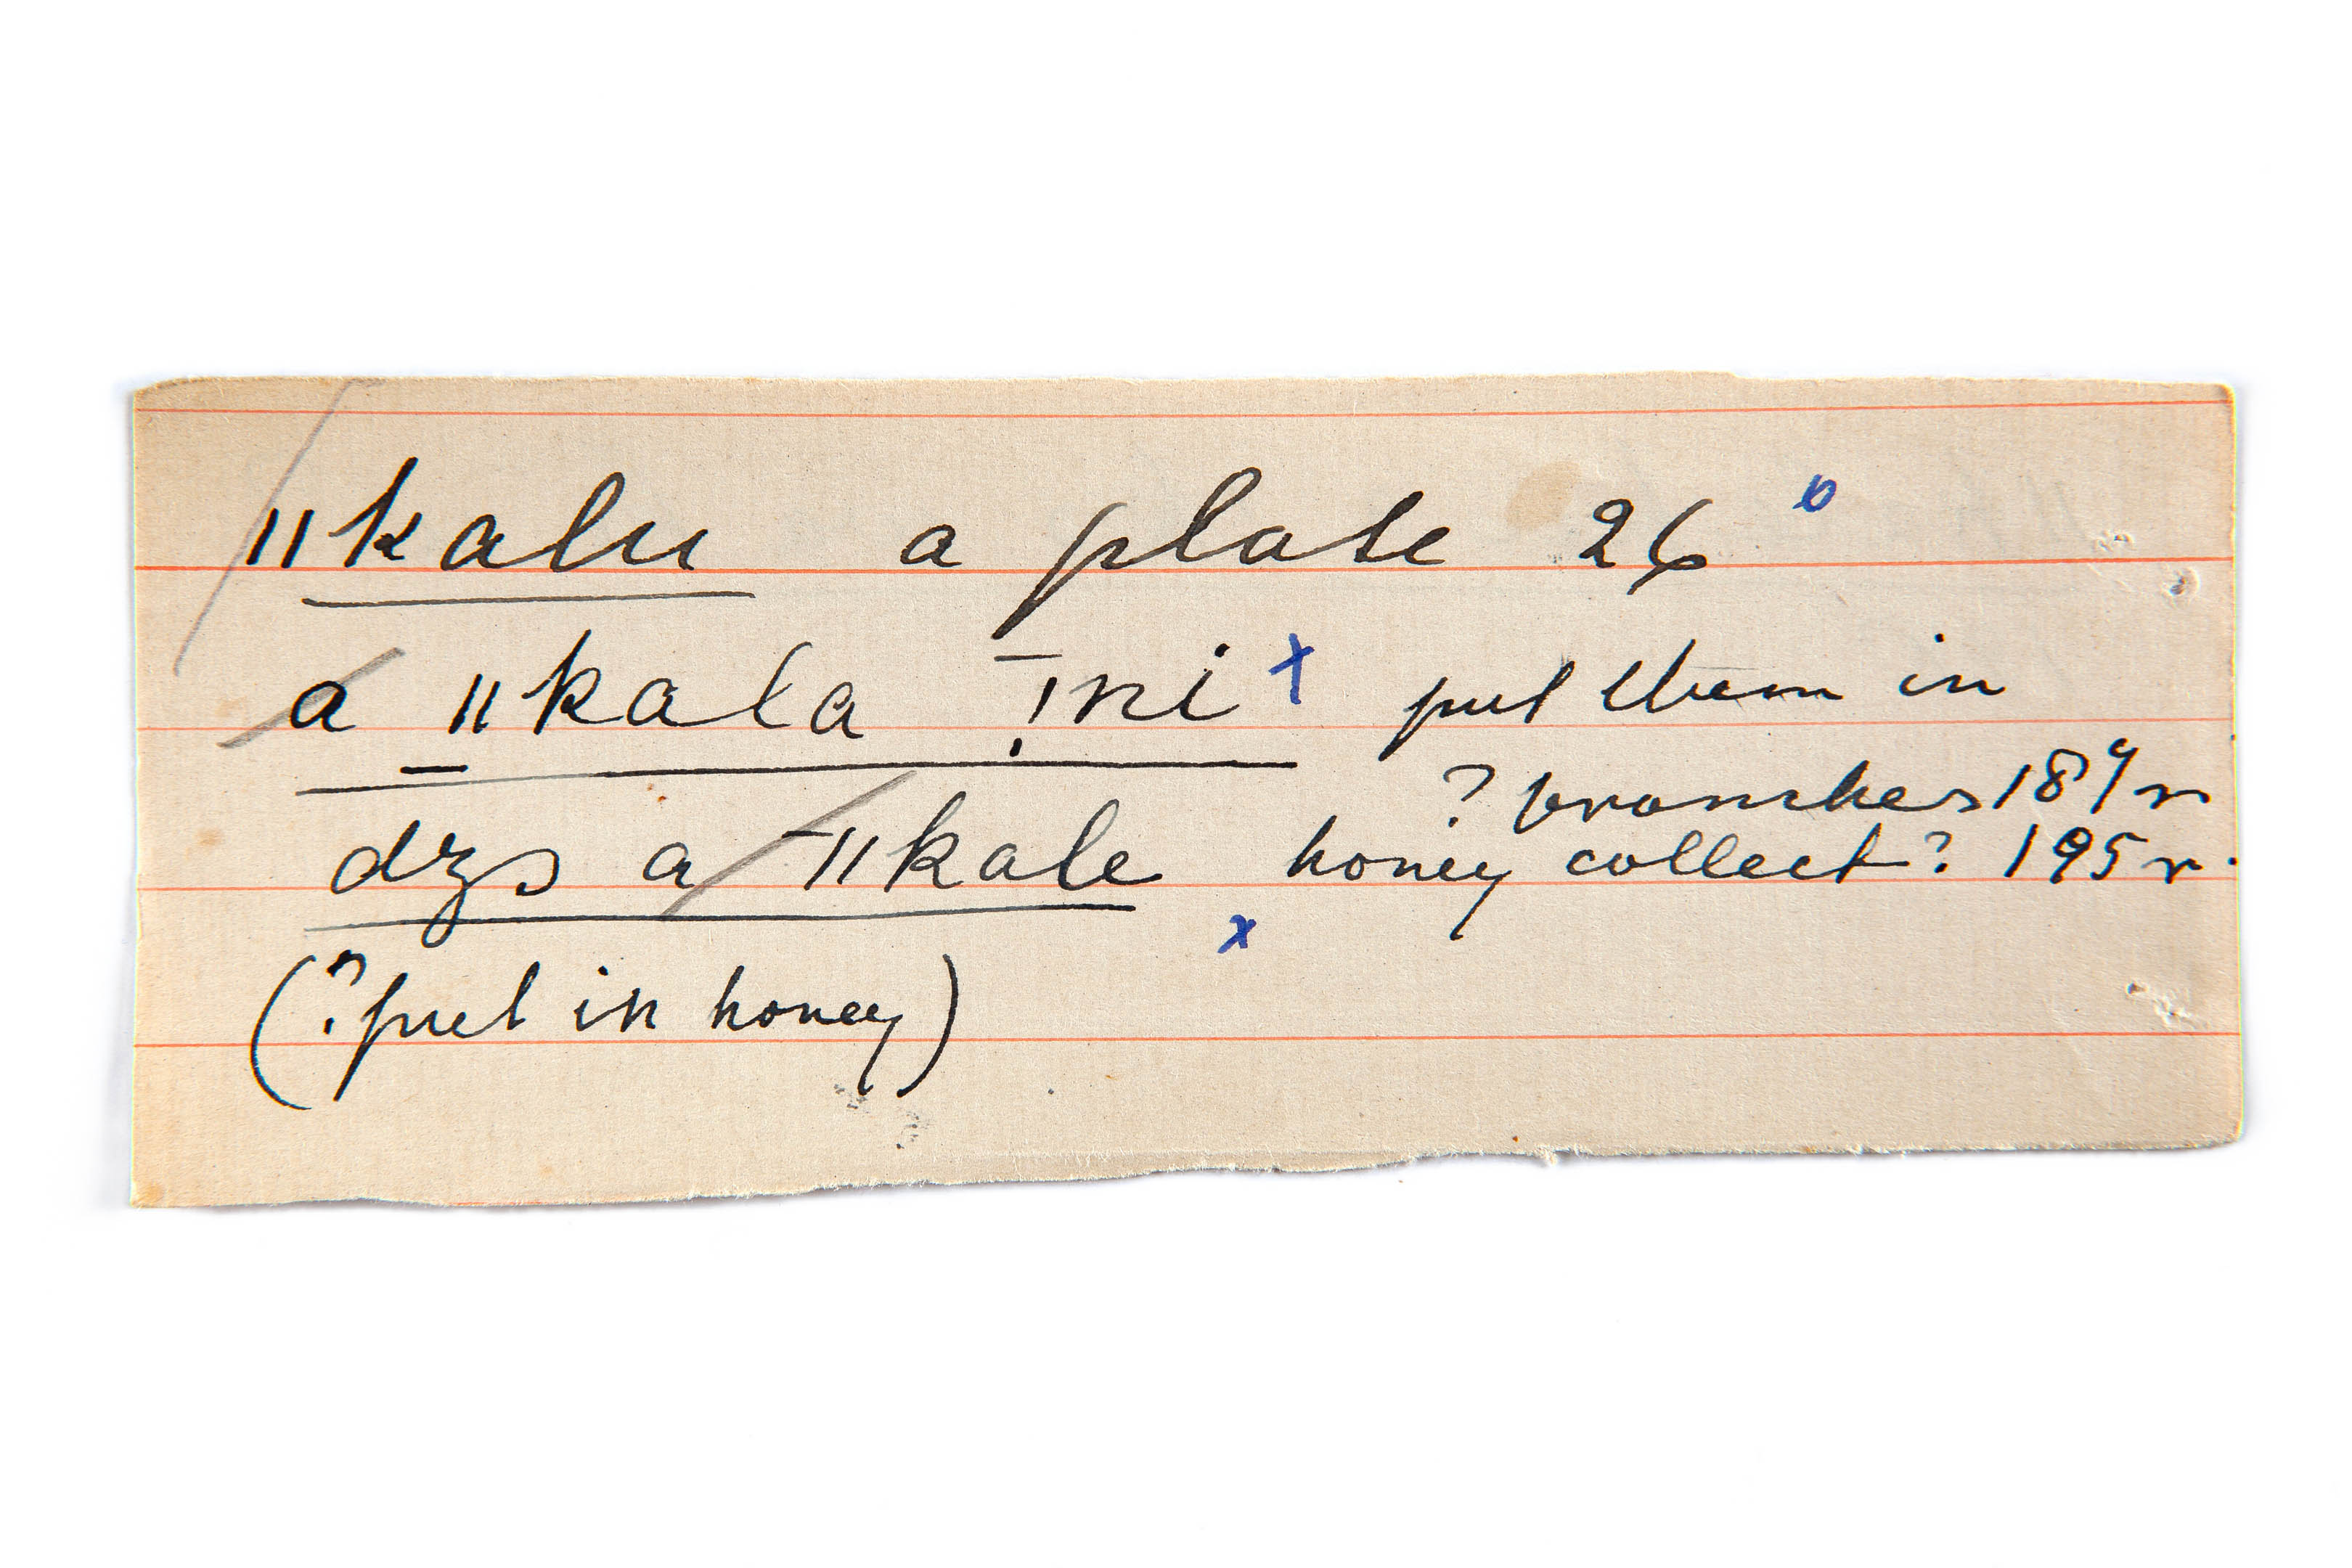 ǁkalu a plate 26 b
a ǁkala ǃni x put them in
? branches 189 r
dzs a ǁkale honey collect? 195 r.
x
(? put in honey)